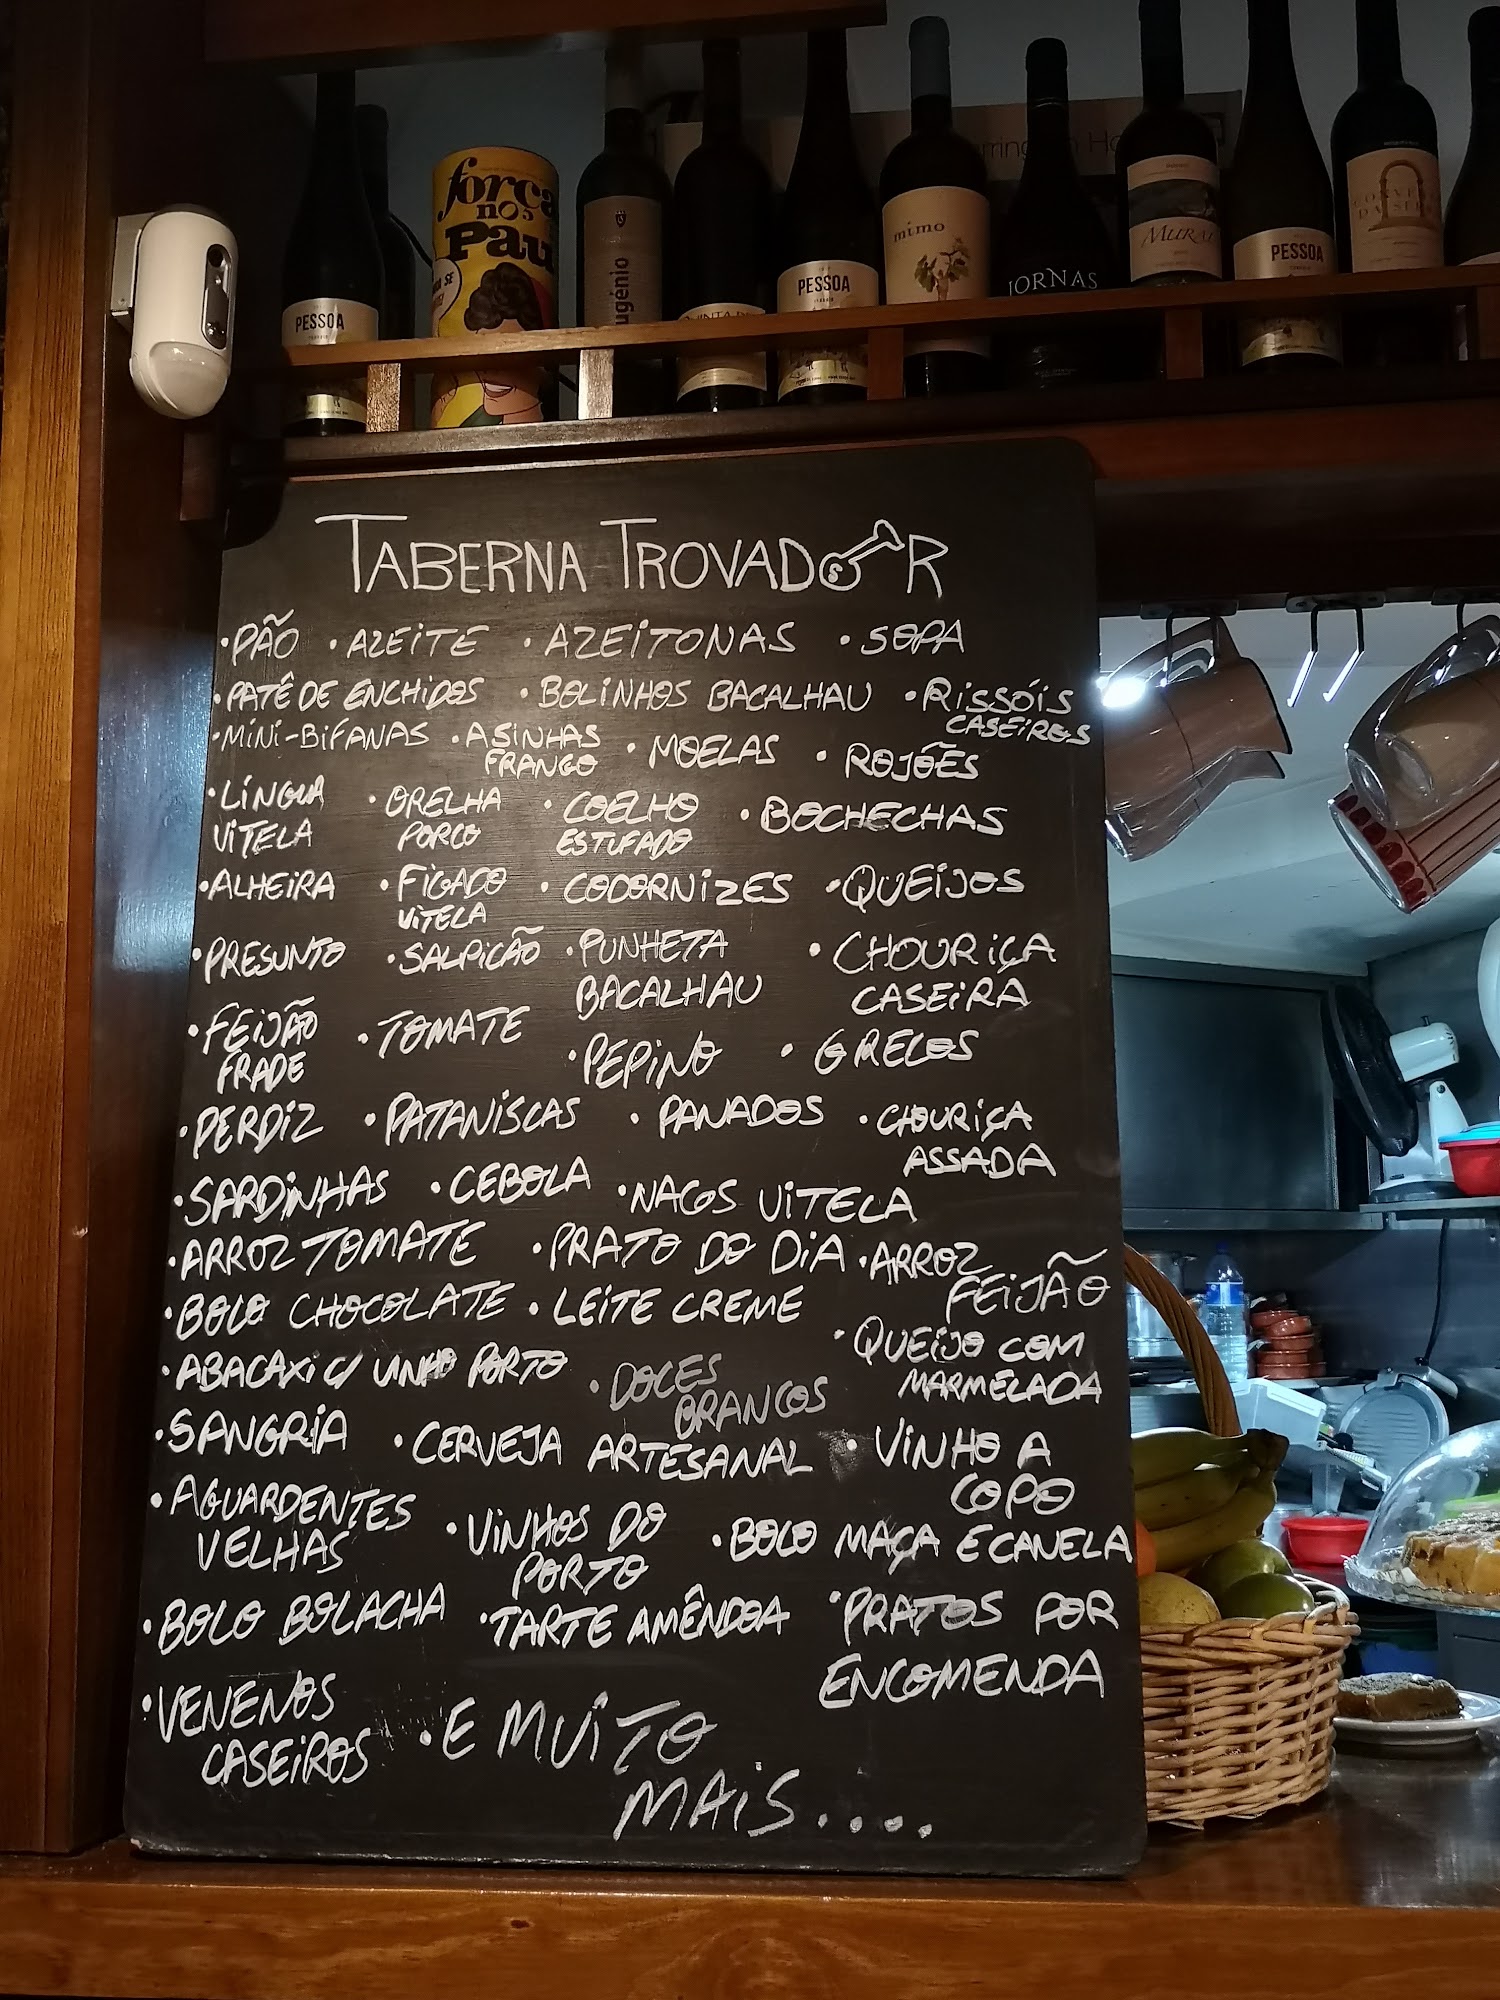 força
nos
Pau
PESSOA
PESSOA
mimo
JORNAS
MURAL
PESSOA
TABERNA TROVADOR
·PÃO ·AZEITE ·AZEITONAS ·SOPA
·PATÊ DE ENCHIDOS ·BOLINHOS BACALHAU ·RISSÓIS CASEIROS
·MINI-BIFANAS ·ASINHAS FRANGO ·MOELAS ·ROJÕES
·LÍNGUA VITELA ·ORELHA PORCO ·COELHO ESTUFADO ·BOCHECHAS
·ALHEIRA ·FIGADO VITELA ·CODORNIZES ·QUEIJOS
·PRESUNTO ·SALPICÃO ·PUNHETA BACALHAU ·CHOURIÇA CASEIRA
·FEIJÃO FRADE ·TOMATE ·PEPINO ·GRELOS
·PERDIZ ·PATANISCAS ·PANADOS ·CHOURIÇA ASSADA
·SARDINHAS ·CEBOLA ·NACOS VITELA
·ARROZ TOMATE ·PRATO DO DIA ·ARROZ FEIJÃO
·BOLO CHOCOLATE ·LEITE CREME ·QUEIJO COM MARMELADA
·ABACAXI C/ VINHO PORTO ·DOCES BRANCOS
·SANGRIA ·CERVEJA ARTESANAL ·VINHO A COPO
·AGUARDENTES VELHAS ·VINHOS DO PORTO ·BOLO MAÇA E CANELA
·BOLO BOLACHA ·TARTE AMÊNDOA ·PRATOS POR ENCOMENDA
·VENENOS CASEIROS ·E MUITO MAIS....